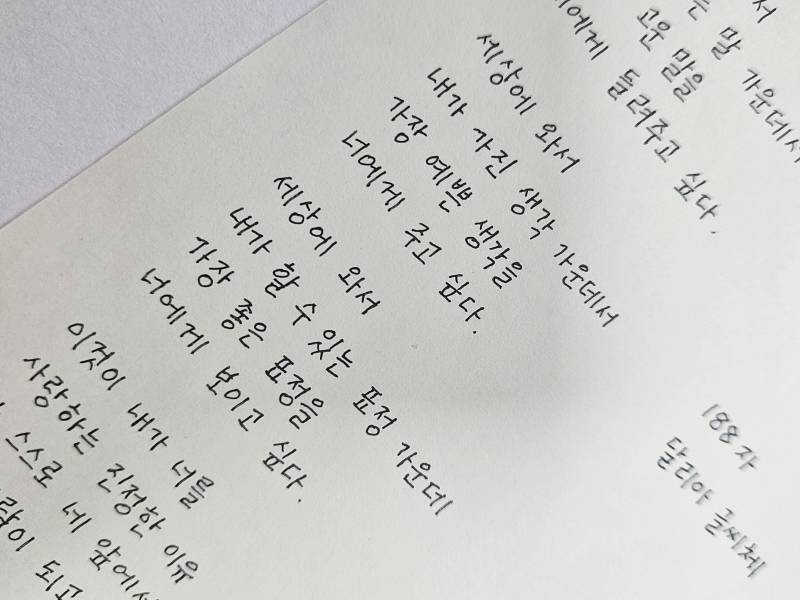 말 가운데서
고운 말을
들려주고 싶다.
세상에 와서
내가 가진 생각 가운데서
가장 예쁜 생각을
너에게 주고 싶다.
세상에 와서
내가 할 수 있는 표정 가운데
가장 좋은 표정을
너에게 보이고 싶다.
이것이 내가 너를
사랑하는 진정한 이유
스스로 네 앞에서
되고
188자
달리아 글씨체